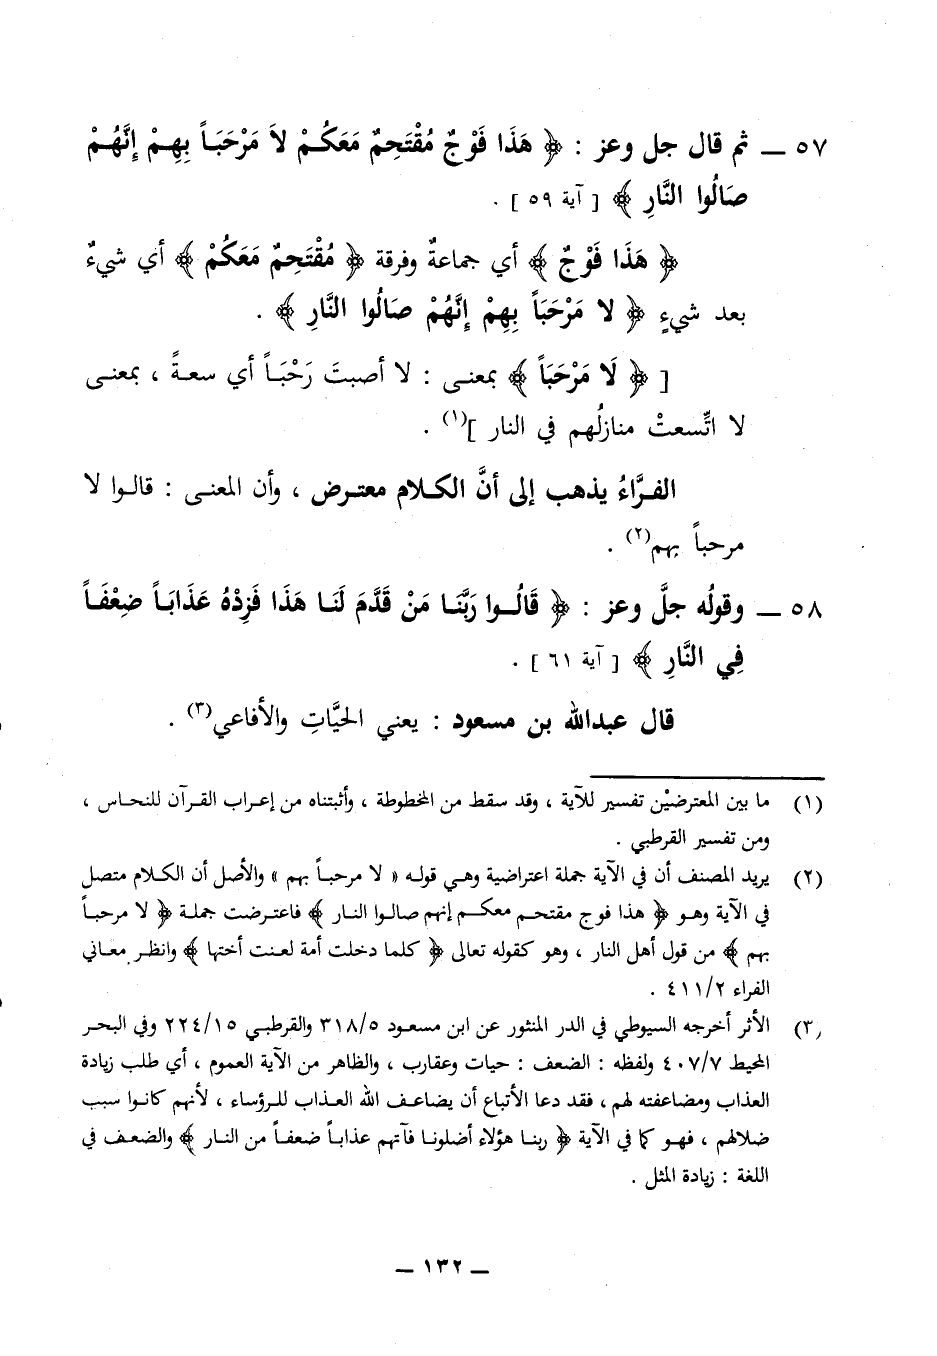 ٥٧ ــ ثم قال جل وعز : ﴿ هَذَا فَوْجٌ مُقْتَحِمٌ مَعَكُمْ لاَ مَرْحَبَاً بِهِمْ إِنَّهُمْ
صَالُوا النَّارِ ﴾ [ آية ٥٩ ] .
﴿ هَذَا فَوْجٌ ﴾ أي جماعةٌ وفرقة ﴿ مُقْتَحِمٌ مَعَكُمْ ﴾ أي شيءٌ
بعد شيءٍ ﴿ لا مَرْحَبَاً بِهِمْ إِنَّهُمْ صَالُوا النَّارِ ﴾ .
[ ﴿ لَا مَرْحَبَاً ﴾ بمعنى : لا أصبتَ رَحْبَاً أي سعةً ، بمعنى
لا اتَّسعتْ منازلُهم في النار ](١) .
الفرَّاءُ يذهب إلى أنَّ الكلام معترض ، وأن المعنى : قالوا لا
مرحباً بهم(٢) .
٥٨ ــ وقولُه جلَّ وعز : ﴿ قَالُوا رَبَّنَا مَنْ قَدَّمَ لَنَا هَذَا فَزِدْهُ عَذَابَاً ضِعْفَاً
فِي النَّارِ ﴾ [ آية ٦١ ] .
قال عبدالله بن مسعود : يعني الحيَّاتِ والأفاعي(٣) .
(١) ما بين المعترضيْن تفسير للآية ، وقد سقط من المخطوطة ، وأثبتناه من إعراب القرآن للنحاس ،
ومن تفسير القرطبي .
(٢) يريد المصنف أن في الآية جملة اعتراضية وهي قوله « لا مرحباً بهم » والأصل أن الكلام متصل
في الآية وهو ﴿ هذا فوج مقتحم معكم إنهم صالوا النار ﴾ فاعترضت جملة ﴿ لا مرحباً
بهم ﴾ من قول أهل النار ، وهو كقوله تعالى ﴿ كلما دخلت أمة لعنت أختها ﴾ وانظر معاني
الفراء ٤١١/٢ .
(٣) الأثر أخرجه السيوطي في الدر المنثور عن ابن مسعود ٣١٨/٥ والقرطبي ٢٢٤/١٥ وفي البحر
المحيط ٤٠٧/٧ ولفظه : الضعف : حيات وعقارب ، والظاهر من الآية العموم ، أي طلب زيادة
العذاب ومضاعفته لهم ، فقد دعا الأتباع أن يضاعف الله العذاب للرؤساء ، لأنهم كانوا سبب
ضلالهم ، فهو كما في الآية ﴿ ربنا هؤلاء أضلونا فآتهم عذاباً ضعفاً من النار ﴾ والضعف في
اللغة : زيادة المثل .
ــ ١٣٢ ــ